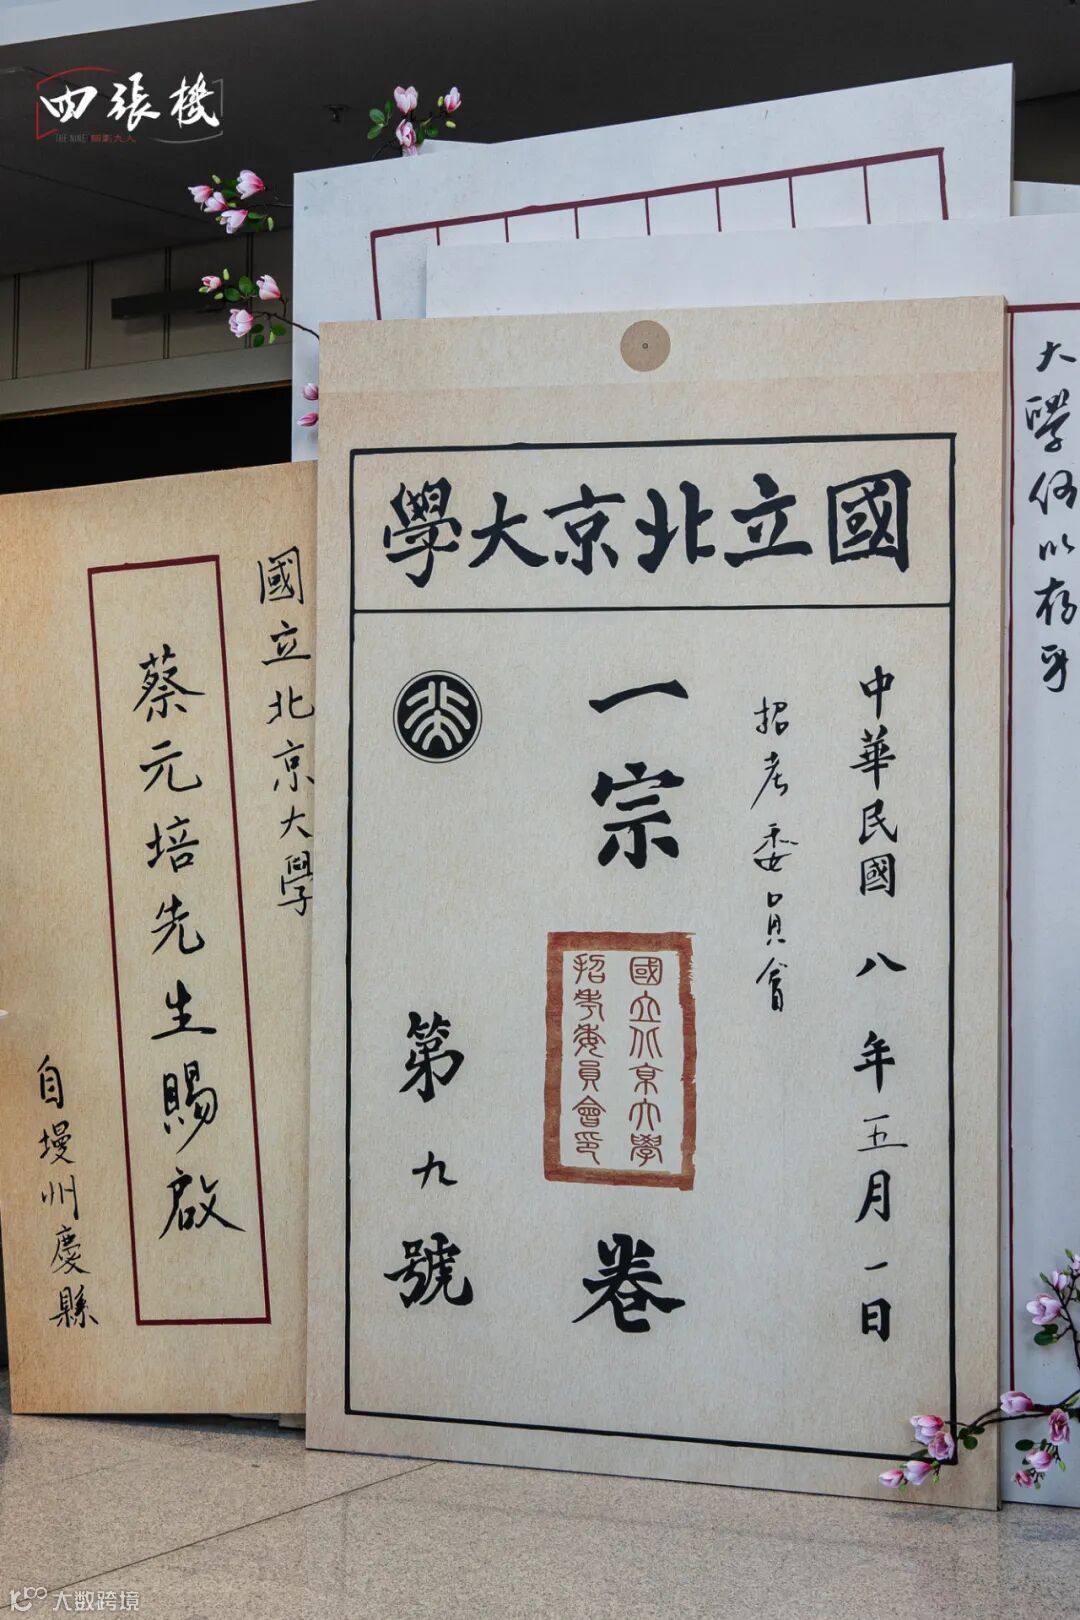 四張機
THE NINE 話劇九人
國立北京大學
中華民國八年五月一日
招考委員會
一宗卷
國立北京大學
招考委員會印
第九號
國立北京大學
蔡元培先生賜啟
自墁州慶縣
大學何以存身
大数跨境